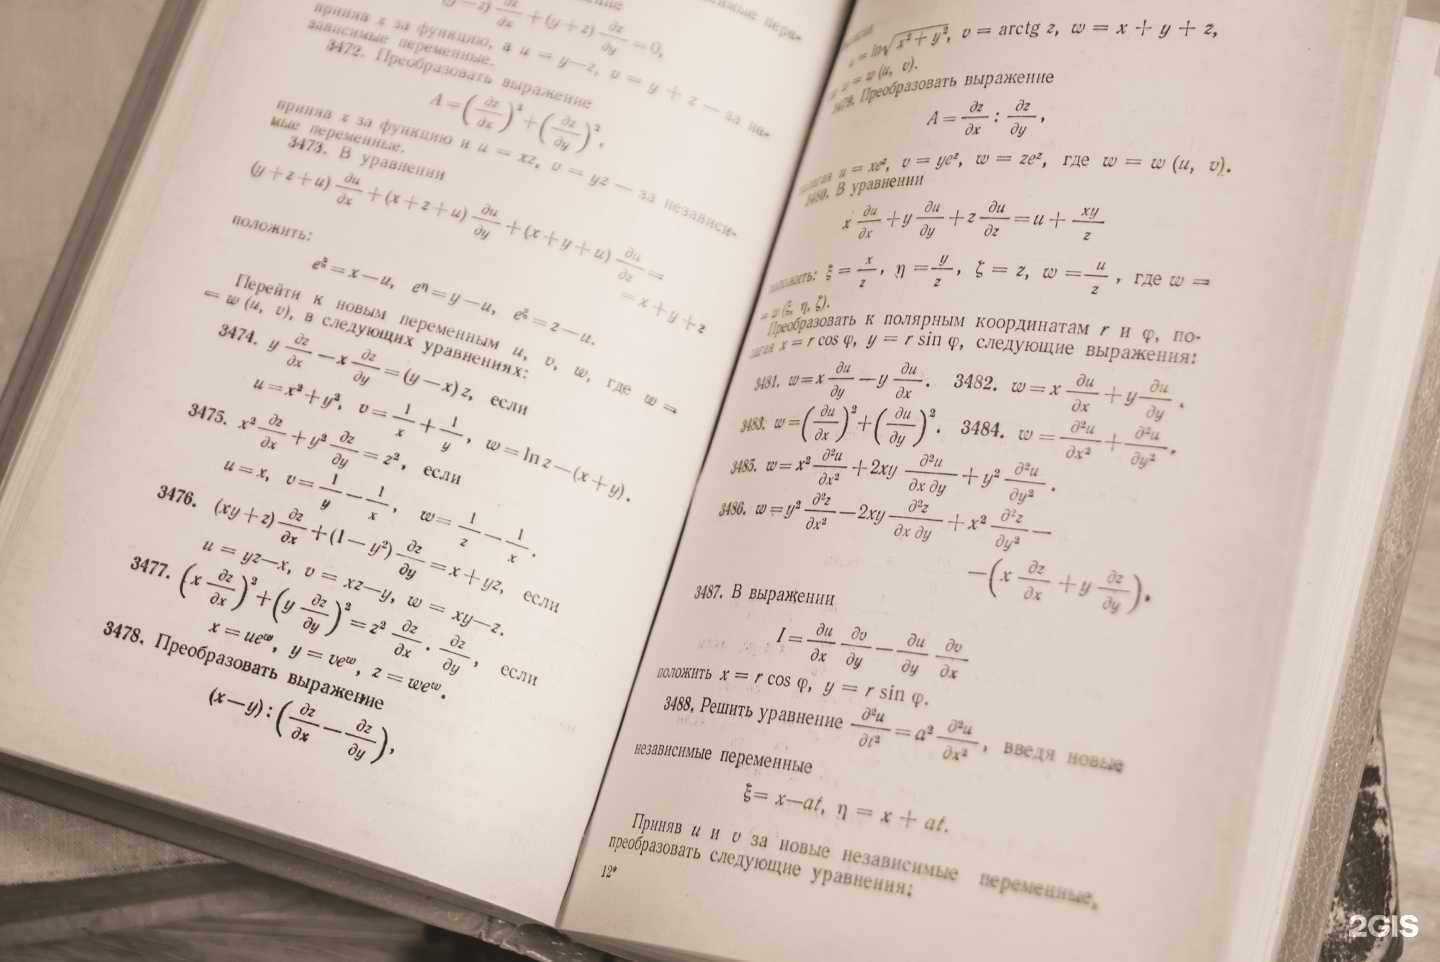 (y−z) ∂z/∂x + (y+z) ∂z/∂y = 0,
приняв x за функцию, а u = y−z, v = y+z — за не-
зависимые переменные.
3472. Преобразовать выражение
A = (∂z/∂x)² + (∂z/∂y)²,
приняв x за функцию и u = xz, v = yz — за независи-
мые переменные.
3473. В уравнении
(y+z+u) ∂u/∂x + (x+z+u) ∂u/∂y + (x+y+u) ∂u/∂z =
= x+y+z
положить:
e^ξ = x−u, e^η = y−u, e^ζ = z−u.
Перейти к новым переменным u, v, w, где w =
= w (u, v), в следующих уравнениях:
3474. y ∂z/∂x − x ∂z/∂y = (y−x) z, если
u = x² + y², v = 1/x + 1/y, w = ln z − (x+y).
3475. x² ∂z/∂x + y² ∂z/∂y = z², если
u = x, v = 1/y − 1/x, w = 1/z − 1/x.
3476. (xy+z) ∂z/∂x + (1−y²) ∂z/∂y = x+yz, если
u = yz−x, v = xz−y, w = xy−z.
3477. (x ∂z/∂x)² + (y ∂z/∂y)² = z² ∂z/∂x · ∂z/∂y, если
x = ue^w, y = ve^w, z = we^w.
3478. Преобразовать выражение
(x−y) : (∂z/∂x − ∂z/∂y),
= ln √(x²+y²), v = arctg z, w = x+y+z,
w = w (u, v).
3479. Преобразовать выражение
A = ∂z/∂x : ∂z/∂y,
полагая u = xe^z, v = ye^z, w = ze^z, где w = w (u, v).
3480. В уравнении
x ∂u/∂x + y ∂u/∂y + z ∂u/∂z = u + xy/z
положить: ξ = x/z, η = y/z, ζ = z, w = u/z, где w =
= w (ξ, η, ζ).
Преобразовать к полярным координатам r и φ, по-
лагая x = r cos φ, y = r sin φ, следующие выражения:
3481. w = x ∂u/∂y − y ∂u/∂x. 3482. w = x ∂u/∂x + y ∂u/∂y.
3483. w = (∂u/∂x)² + (∂u/∂y)². 3484. w = ∂²u/∂x² + ∂²u/∂y².
3485. w = x² ∂²u/∂x² + 2xy ∂²u/∂x ∂y + y² ∂²u/∂y².
3486. w = y² ∂²z/∂x² − 2xy ∂²z/∂x ∂y + x² ∂²z/∂y² −
− (x ∂z/∂x + y ∂z/∂y).
3487. В выражении
I = ∂u/∂x ∂v/∂y − ∂u/∂y ∂v/∂x
положить x = r cos φ, y = r sin φ.
3488. Решить уравнение ∂²u/∂t² = a² ∂²u/∂x², введя новые
независимые переменные
ξ = x−at, η = x + at.
Приняв u и v за новые независимые переменные,
преобразовать следующие уравнения:
12*
2GIS